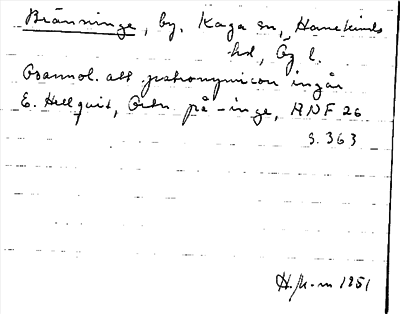 Bränninge, by, Kaga sn, Hanekinds
hd, Ög l.
Osannol. att patronymicon ingår
E. Hellquist, Ortn på -inge, ANF 26
s. 363
1951